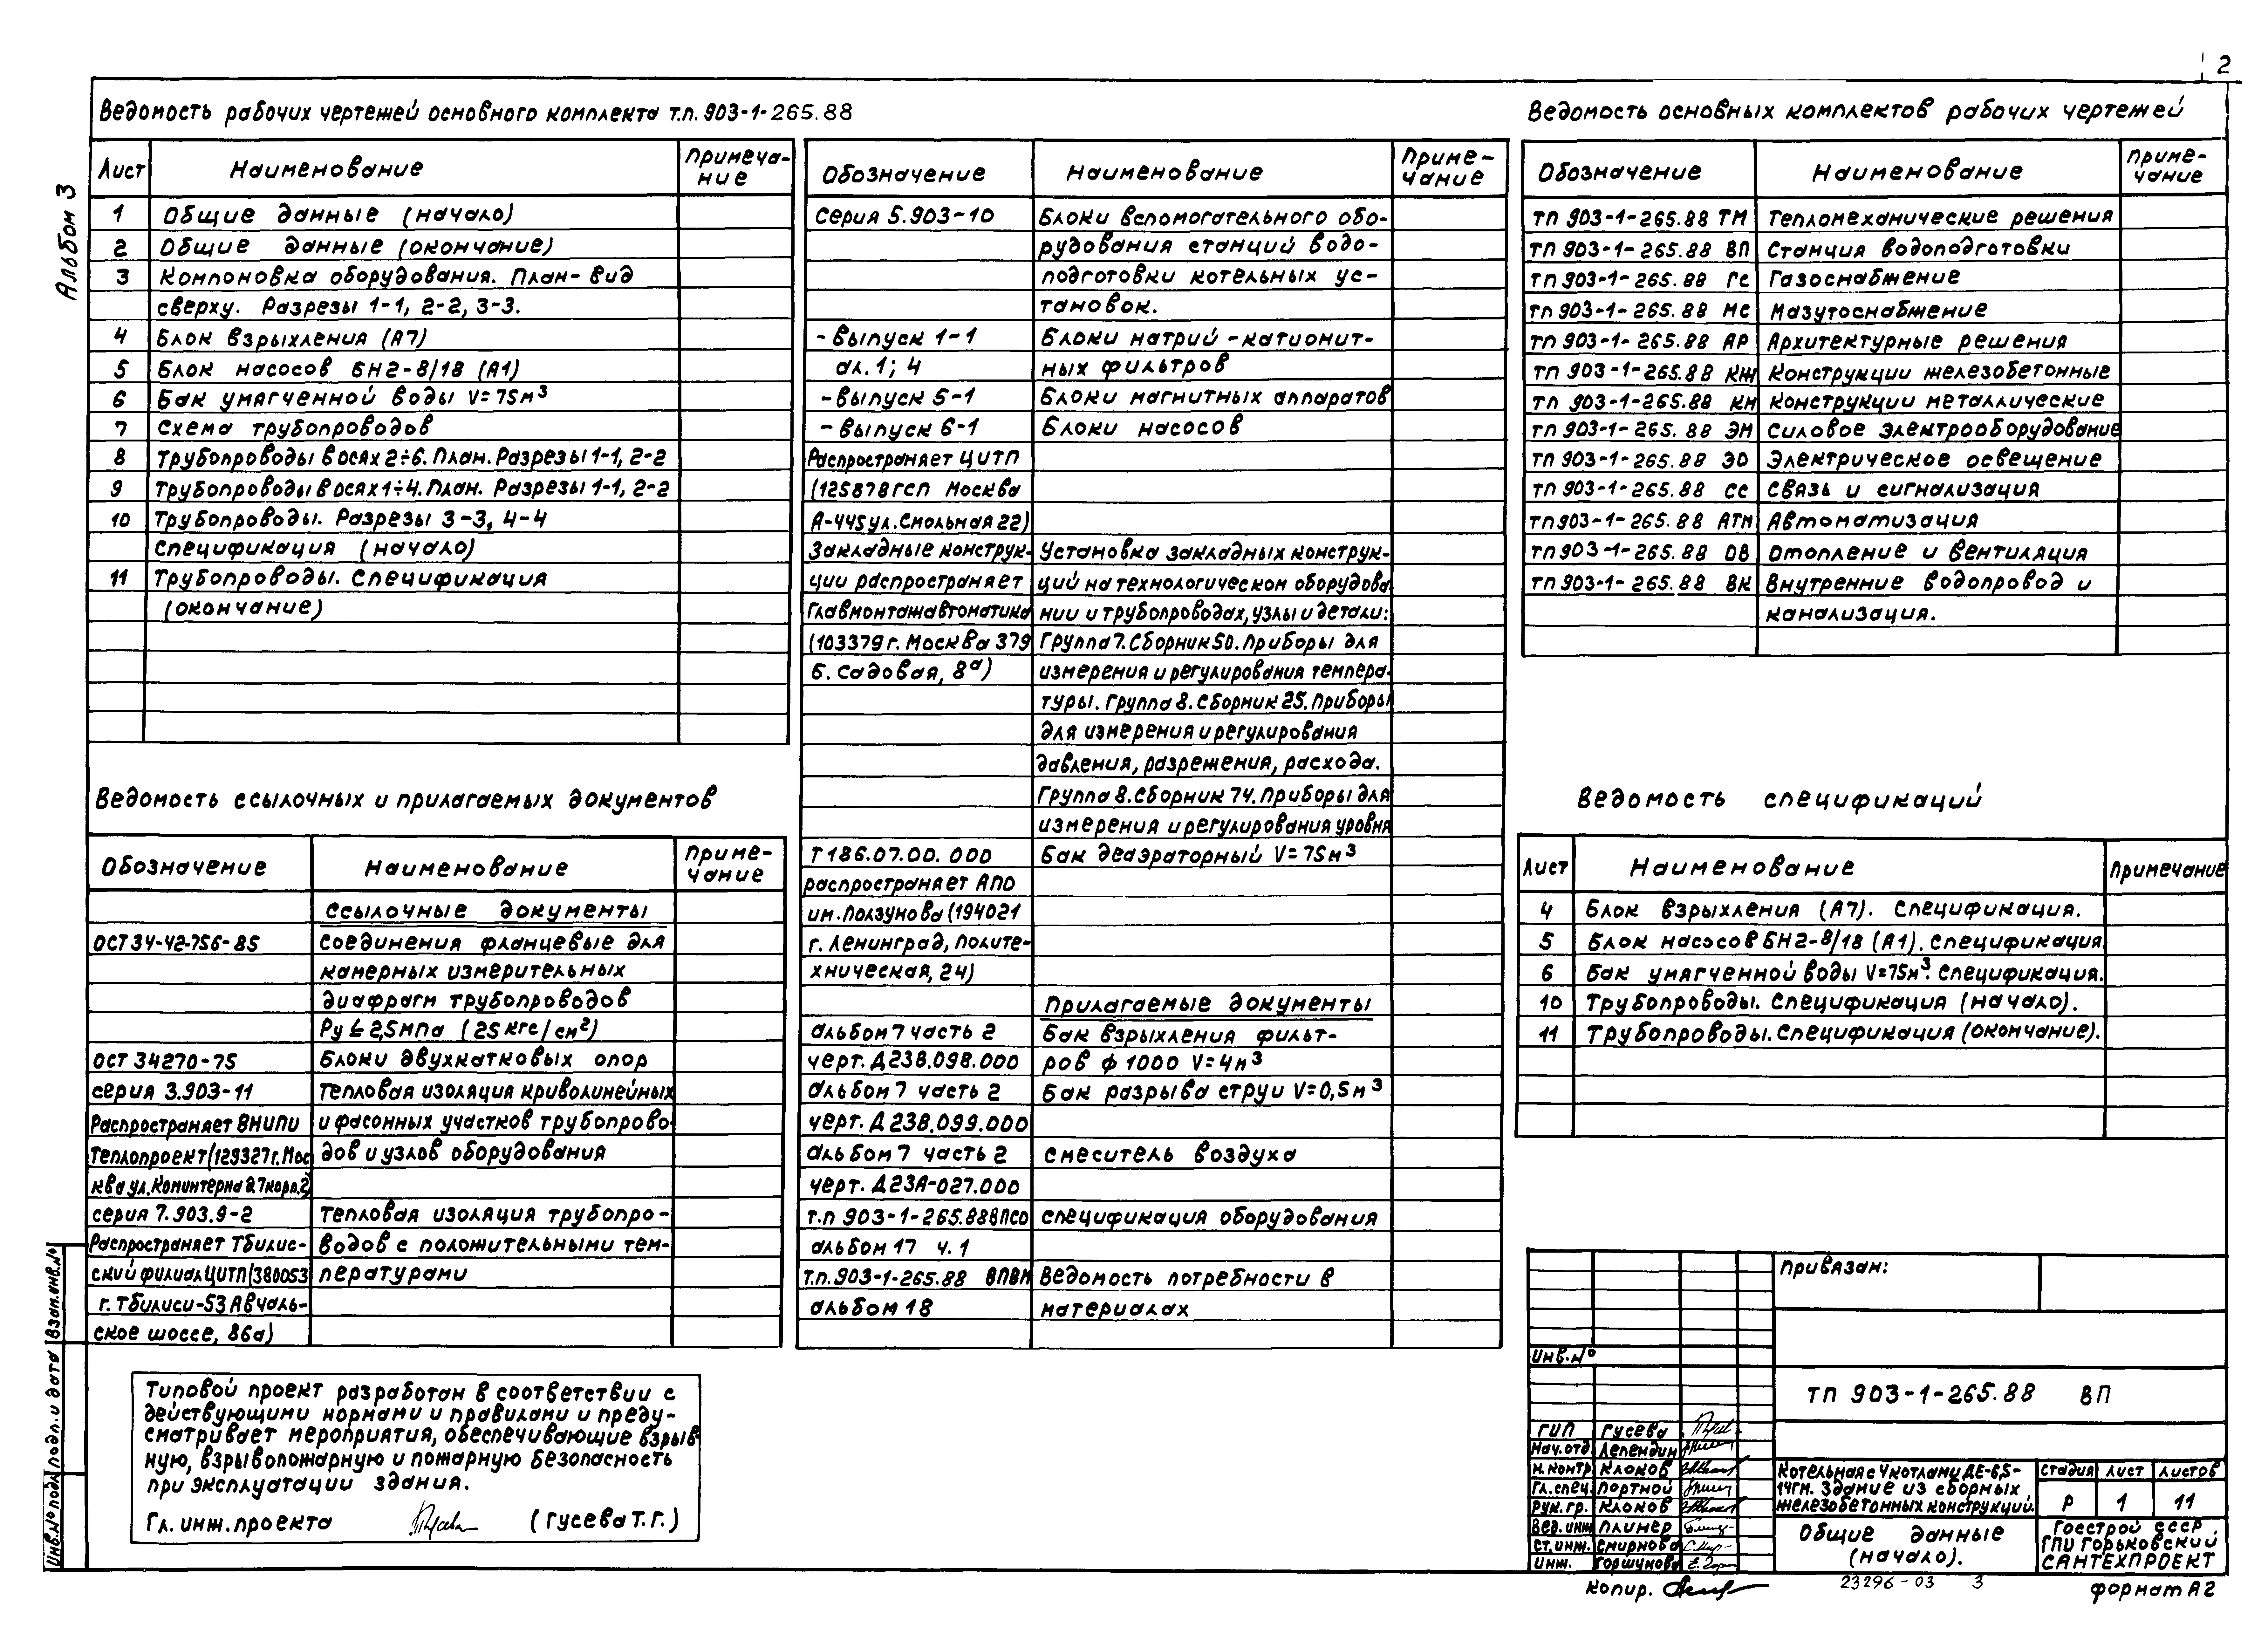 2
Альбом 3
Ведомость рабочих чертежей основного комплекта т.п. 903-1-265.88
Лист Наименование Примеча-
ние
1 Общие данные (начало)
2 Общие данные (окончание)
3 Компоновка оборудования. План-вид
сверху. Разрезы 1-1, 2-2, 3-3.
4 Блок взрыхления (А7)
5 Блок насосов БН2-8/18 (А1)
6 Бак умягченной воды V=75м³
7 Схема трубопроводов
8 Трубопроводы в осях 2÷6. План. Разрезы 1-1, 2-2
9 Трубопроводы в осях 1÷4. План. Разрезы 1-1, 2-2
10 Трубопроводы. Разрезы 3-3, 4-4
Спецификация (начало)
11 Трубопроводы. Спецификация
(окончание)
Ведомость ссылочных и прилагаемых документов
Обозначение Наименование Приме-
чание
Ссылочные документы
ОСТ 34-42-756-85 Соединения фланцевые для
камерных измерительных
диафрагм трубопроводов
Ру ≤ 2,5 МПа (25 кгс/см²)
ОСТ 34270-75 Блоки двухкатковых опор
серия 3.903-11 Тепловая изоляция криволинейных
Распространяет ВНИПИ и фасонных участков трубопрово-
Теплопроект (129327 г. Мос дов и узлов оборудования
ква ул. Коминтерна д.7 корп.2)
серия 7.903.9-2 Тепловая изоляция трубопро-
Распространяет Тбилис- водов с положительными тем-
ский филиал ЦИТП (380053 пературами
г. Тбилиси-53 Авчаль-
ское шоссе, 86а)
Обозначение Наименование Приме-
чание
Серия 5.903-10 Блоки вспомогательного обо-
рудования станций водо-
подготовки котельных ус-
тановок.
-Выпуск 1-1 Блоки натрий-катионит-
ал. 1; 4 ных фильтров
-Выпуск 5-1 Блоки магнитных аппаратов
-Выпуск 6-1 Блоки насосов
Распространяет ЦИТП
(125878 ГСП Москва
А-445 ул. Смольная 22)
Закладные конструк- Установка закладных конструк-
ции распространяет ций на технологическом оборудова
Главмонтажавтоматика нии и трубопроводах, узлы и детали:
(103379 г. Москва 379 Группа 7. Сборник 50. Приборы для
Б. Садовая, 8а) измерения и регулирования темпера-
туры. Группа 8. Сборник 25. Приборы
для измерения и регулирования
давления, разрежения, расхода.
Группа 8. Сборник 74. Приборы для
измерения и регулирования уровня
Т186.07.00.000 Бак деаэраторный V=75м³
распространяет АПО
им. Ползунова (194021
г. Ленинград, Полите-
хническая, 24)
Прилагаемые документы
альбом 7 часть 2 Бак взрыхления фильт-
черт. Д23В.098.000 ров ф 1000 V=4м³
альбом 7 часть 2 Бак разрыва струи V=0,5м³
черт. Д23В.099.000
альбом 7 часть 2 Смеситель воздуха
черт. Д23А-027.000
т.п 903-1-265.88 ВПСО Спецификация оборудования
альбом 17 ч.1
т.п. 903-1-265.88 ВПВМ Ведомость потребности в
альбом 18 материалах
Ведомость основных комплектов рабочих чертежей
Обозначение Наименование Приме-
чание
ТП 903-1-265.88 ТМ Тепломеханические решения
ТП 903-1-265.88 ВП Станция водоподготовки
ТП 903-1-265.88 ГС Газоснабжение
ТП 903-1-265.88 МС Мазутоснабжение
ТП 903-1-265.88 АР Архитектурные решения
ТП 903-1-265.88 КЖ Конструкции железобетонные
ТП 903-1-265.88 КМ Конструкции металлические
ТП 903-1-265.88 ЭМ Силовое электрооборудование
ТП 903-1-265.88 ЭО Электрическое освещение
ТП 903-1-265.88 СС Связь и сигнализация
ТП 903-1-265.88 АТМ Автоматизация
ТП 903-1-265.88 ОВ Отопление и вентиляция
ТП 903-1-265.88 ВК Внутренние водопровод и
канализация.
Ведомость спецификаций
Лист Наименование Примечание
4 Блок взрыхления (А7). Спецификация.
5 Блок насосов БН2-8/18 (А1). Спецификация
6 Бак умягченной воды V=75м³. Спецификация.
10 Трубопроводы. Спецификация (начало).
11 Трубопроводы. Спецификация (окончание).
Типовой проект разработан в соответствии с
действующими нормами и правилами и преду-
сматривает мероприятия, обеспечивающие взрыв-
ную, взрывопожарную и пожарную безопасность
при эксплуатации здания.
Гл. инж. проекта (Гусева Т.Г.)
Взам. инв. №
Подп. и дата
Инв. № подл.
Привязан:
Инв. №
ТП 903-1-265.88 ВП
ГИП Гусева
Нач. отд. Лепендин
Н. контр. Клоков
Гл. спец. Портной
Рук. гр. Клоков
Вед. инж. Плинер
Ст. инж. Смирнова
Инж. Горшунова
Котельная с 4 котлами ДЕ-6,5-
14ГМ. Здание из сборных
железобетонных конструкций.
Стадия Лист Листов
Р 1 11
Общие данные
(начало).
Госстрой СССР
ГПИ Горьковский
САНТЕХПРОЕКТ
Копир.
23296-03 3
формат А2